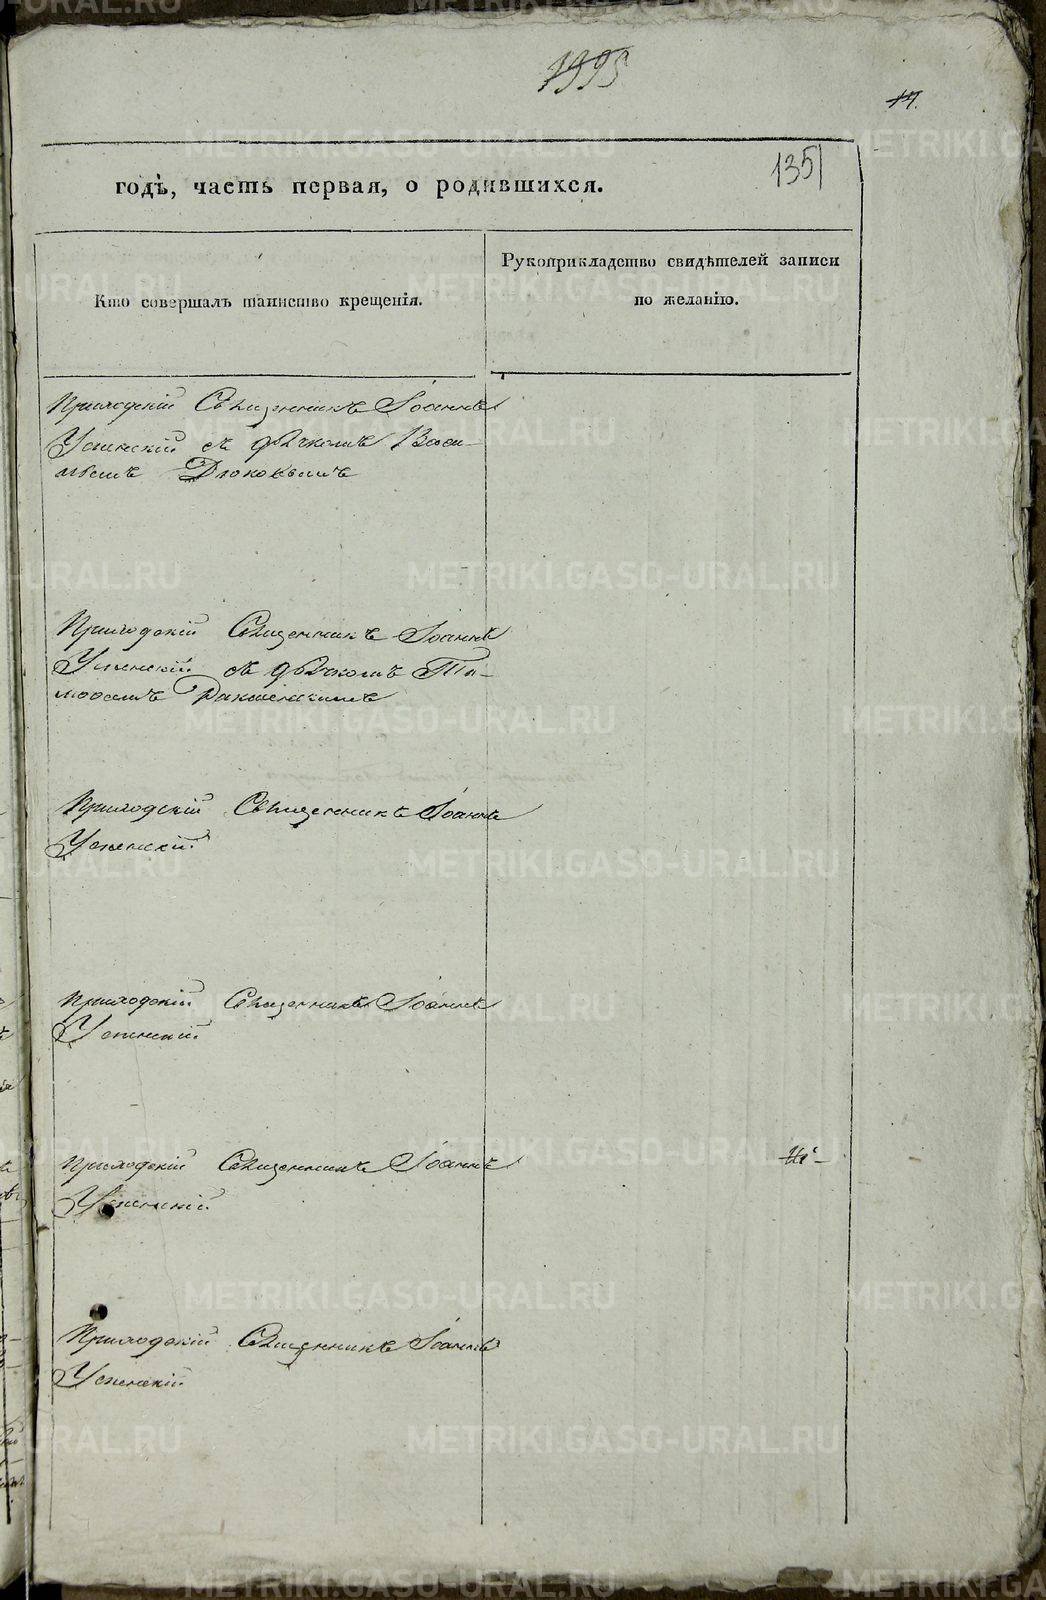 1995
14.
135
годъ, часть первая, о родившихся.
Кто совершалъ таинство крещенія.
Рукоприкладство свидѣтелей записи
по желанію.
Приходскій Священникъ Іоаннъ
Успенскій съ дьячкомъ Васи-
льемъ
Приходскій Священникъ Іоаннъ
Успенскій съ дьячкомъ Ти-
мофеемъ
Приходскій Священникъ Іоаннъ
Успенскій
Приходскій Священникъ Іоаннъ
Успенскій
Приходскій Священникъ Іоаннъ
Успенскій
Приходскій Священникъ Іоаннъ
Успенскій
METRIKI.GASO-URAL.RU